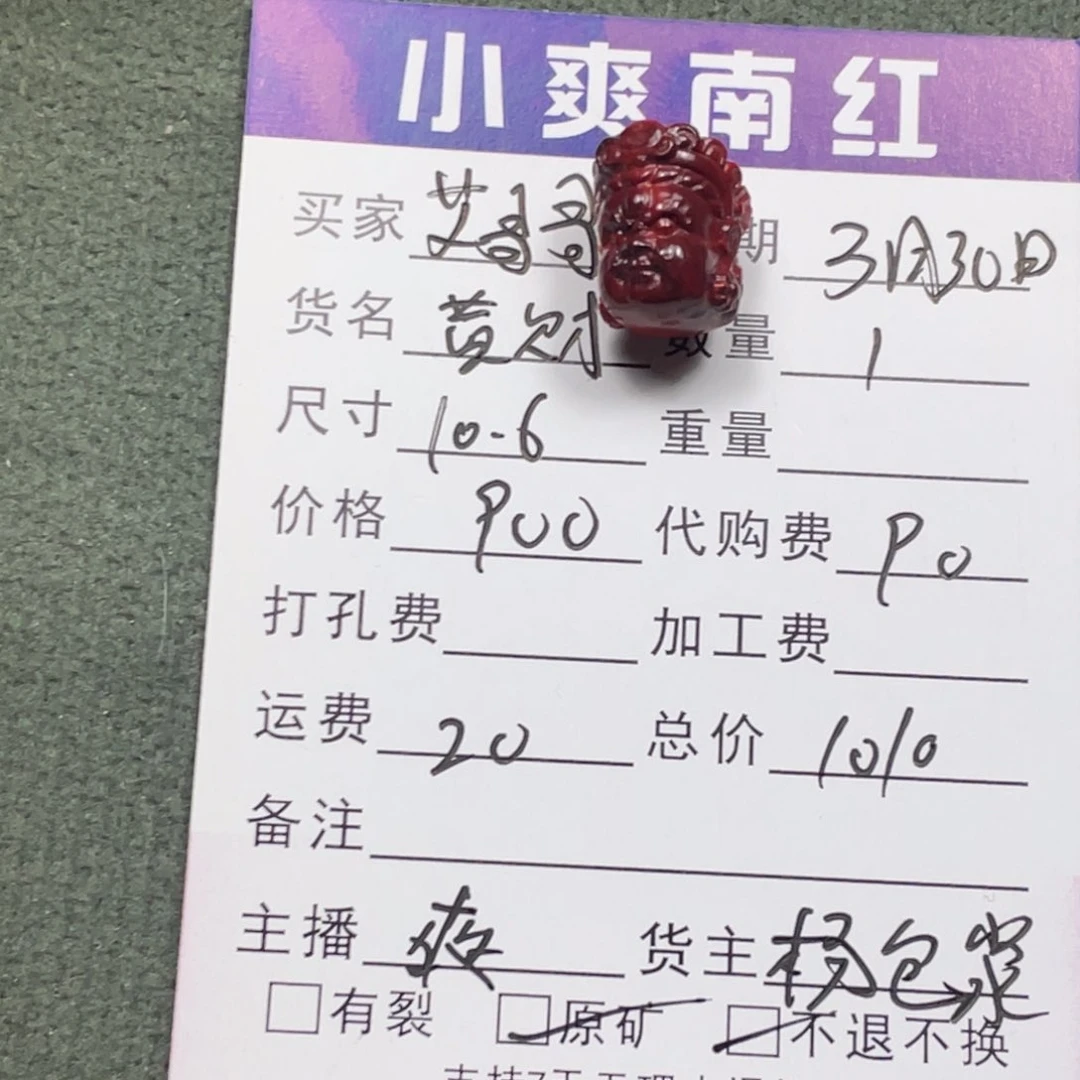 小爽南红
买家 艾哥哥 期 3月30日
货名 黄财 数量 1
尺寸 10.6 重量
价格 900 代购费 90
打孔费 加工费
运费 20 总价 1010
备注
主播 爽 货主 杨包浆
有裂 原矿 不退不换